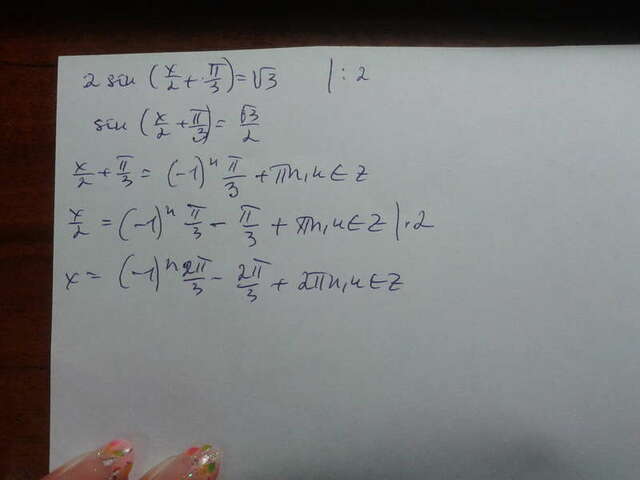 2 sin (x/2 + π/3) = √3 | : 2
sin (x/2 + π/3) = √3/2
x/2 + π/3 = (-1)ⁿ π/3 + πn, n ∈ Z
x/2 = (-1)ⁿ π/3 - π/3 + πn, n ∈ Z | · 2
x = (-1)ⁿ 2π/3 - 2π/3 + 2πn, n ∈ Z